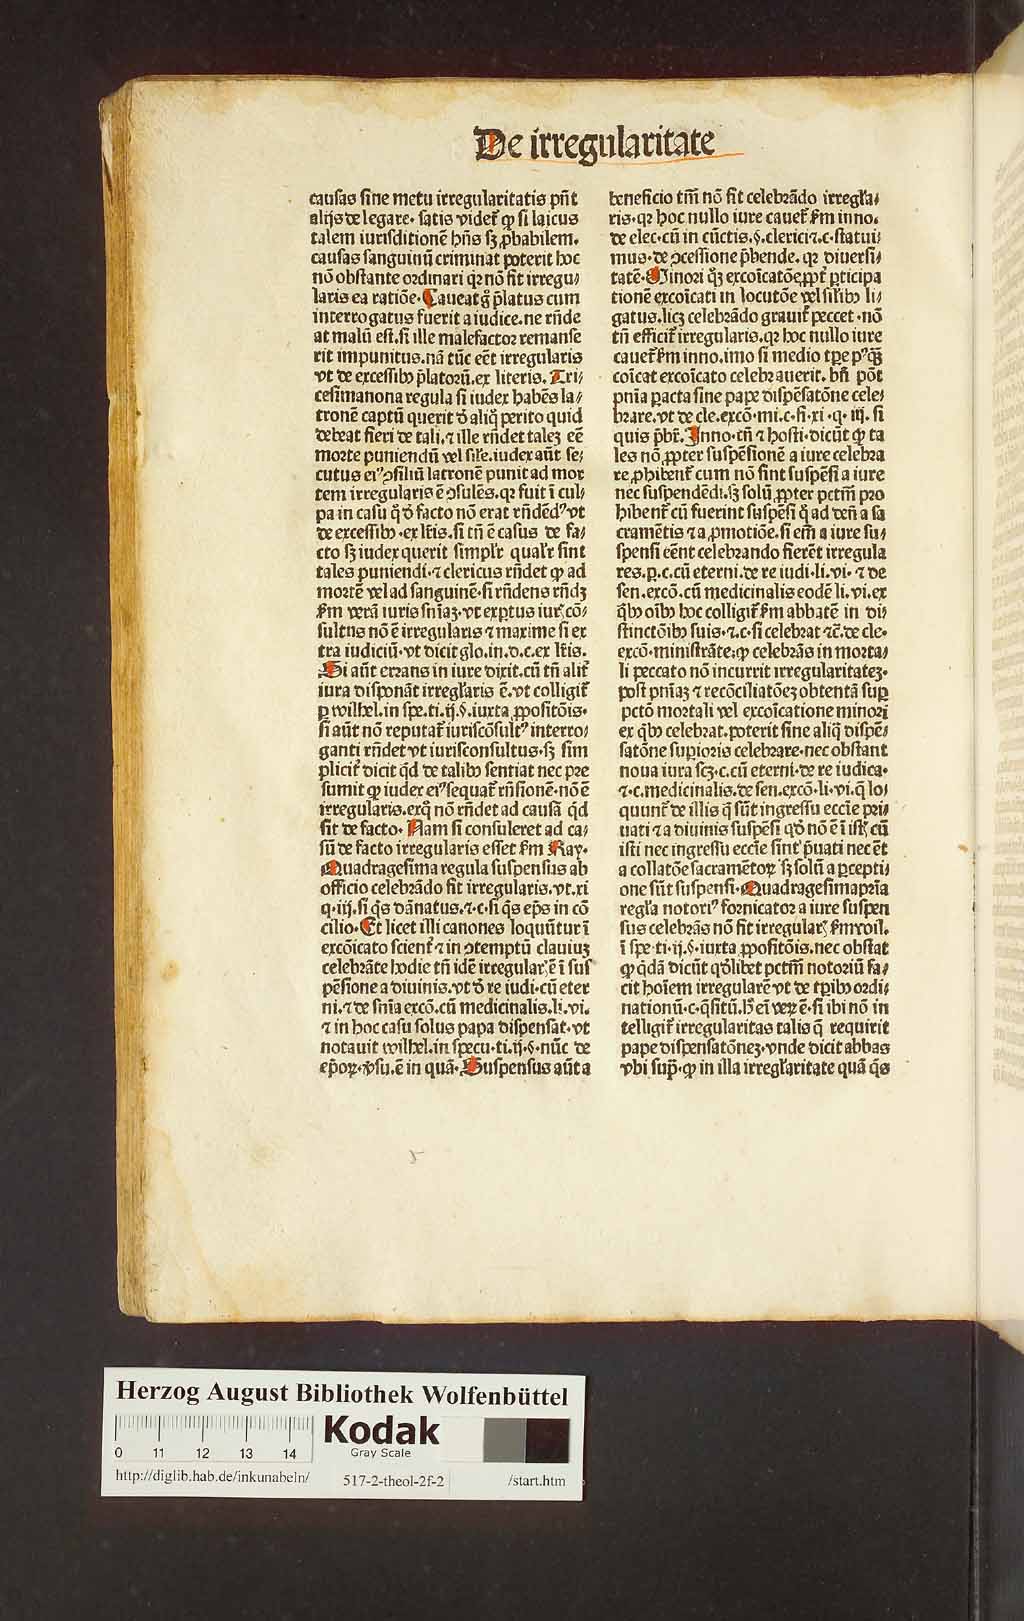 De irregularitate
causas sine metu irregularitatis pñt
alijs delegare. satis videt̃ ꝙ si laicus
talem iurisditionē hñs sꝫ ꝓbabilem.
causas sanguinū criminat poterit hoc
nō obstante ordinari qꝛ nō fit irregu⸗
laris ea ratiōe. Caueat g̊ p̄latus cum
interrogatus fuerit a iudice. ne rñde
at malū est. si ille malefactor remanse
rit impunitus. nā tūc eēt irregularis
vt de excessibꝰ p̄latorū. ex literis. Tri⸗
cesimanona regula si iudex habēs la⸗
tronē captū querit ð aliq̊ perito quid
debeat fieri de tali. ⁊ ille rñdet taleꝫ eē
morte puniendū vel sile. iudex aūt se⸗
cutus eiꝰ ꝯsiliū latronē punit ad mor
tem irregularis ē ꝯsulēs. qꝛ fuit ī cul⸗
pa in casu q̊ ð facto nō erat rñdēdꝰ vt
de excessibꝰ. ex lr̄is. si tñ ē casus de fa⸗
cto sꝫ iudex querit simplr̄ qualr̄ sint
tales puniendi. ⁊ clericus rñdet ꝙ ad
mortē vel ad sanguinē. si rñdens rñdꝫ
ẜm verā iuris sñiaꝫ. vt exꝑtus iurꝭ cō⸗
sultus nō ē irregularis ⁊ maxime si ex
tra iudiciū. vt dicit glo. in. d. c. ex lr̄is.
Si aūt errans in iure dixit. cū tñ alit̃
iura disponāt irregl̄aris ē. vt colligit̃
ꝑ wilhel. in spe. ti. ij. §. iuxta ꝓpositōis.
si aūt nō reputat̃ iuriscōsultꝰ interro⸗
ganti rñdet vt iurisconsultus. sꝫ sim
plicit̃ dicit qd̄ de talibꝰ sentiat nec pre
sumit ꝙ iudex eiꝰ sequat̃ rñsionē. nō ē
irregularis. ex q̊ nō rñdet ad causā qd̄
sit de facto. Nam si consuleret ad ca⸗
sū de facto irregularis esset ẜm Ray.
Quadragesima regula suspensus ab
officio celebrādo fit irregularis. vt. xi
q. iij. si q̄s dānatus. ⁊. c. si q̄s ep̄s in cō
cilio. Et licet illi canones loquūtur ī
excōicato scient̃ ⁊ in ꝯtemptū clauiuꝫ
celebrāte hodie tñ idē irregularꝭ ē ī sus
pēsione a diuinis. vt ð re iudi. cū eter
ni. ⁊ de sñia excō. cū medicinalis. li. vi.
⁊ in hoc casu solus papa dispensat. vt
notauit wilhel. in specu. ti. ij. §. nūc de
ep̄oꝝ. ꝟsu. ē in quā. Suspensus aūt a
beneficio tm̄ nō fit celebrādo irregl̄a⸗
ris. qꝛ hoc nullo iure cauet̃ ẜm inno.
de elec. cū in cūctis. §. clerici ⁊. c. statui⸗
mus. de ꝯcessione p̄bende. qꝛ diuersi⸗
tatē. Minori qꝫ excoīcatōe ꝓpt̃ ꝑticipa
tionē excoīcati in locutōe vel silibꝰ li⸗
gatus. licꝫ celebrādo grauit̃ peccet. nō
tñ efficit̃ irregularis. qꝛ hoc nullo iure
cauet̃ ẜm inno. imo si medio tꝑe pꝰqꝫ
coīcat excoīcato celebrauerit. bñ pōt
pnīa ꝑacta sine pape dispēsatōne cele⸗
brare. vt de cle. excō. mi. c. fi. xi. q. iij. si
quis p̄bt̃. Inno. tñ ⁊ hosti. dicūt ꝙ ta
les nō ꝓpter suspēsionē a iure celebra
re ꝓhibent̃ cum nō sint suspēsi a iure
nec suspendēdi. sꝫ solū ꝓpter pctm̄ pro
hibent̃ cū fuerint suspēsi q̊ ad deū a sa
cramētis ⁊ a ꝓmotiōe. si em̄ a iure su⸗
spensi eēnt celebrando fierēt irregula
res. ꝑ. c. cū eterni. de re iudi. li. vi. ⁊ de
sen. excō. cū medicinalis eodē li. vi. ex
qbꝰ oībꝰ hoc colligit̃ ẜm abbatē in di⸗
stinctōibꝰ suis. ⁊. c. si celebrat ⁊c̄. de cle.
excō. ministrāte. ꝙ celebrās in morta⸗
li peccato nō incurrit irregularitateꝫ.
post pnīaꝫ ⁊ recōciliatōeꝫ obtentā suꝑ
pctō mortali vel excoīcatione minori
ex qbꝰ celebrat. poterit sine aliq̄ dispē⸗
satōne suꝑioris celebrare. nec obstant
noua iura scꝫ. c. cū eterni. de re iudica.
⁊. c. medicinalis. de sen. excō. li. vi. q̄ lo⸗
quunt̃ de illis q̄ sūt ingressu ecc̄ie pri⸗
uati ⁊ a diuinis suspēsi qð nō ē ī istꝭ cū
isti nec ingressu ecc̄ie sint p̄uati nec ēt
a collatōe sacramētoꝝ sꝫ solū a ꝑcepti⸗
one sūt suspensi. Quadragesimaprīa
regl̄a notoriꝰ fornicator a iure suspen
sus celebrās nō fit irregularꝭ ẜm voil.
ī spe. ti. ij. §. iuxta ꝓpositōis. nec obstat
ꝙ qdā dicūt qðlibet pctm̄ notoriū fa⸗
cit hoīem irregularē vt de tꝑibꝰ ordi⸗
nationū. c. q̄situ. hꝫ eī veꝝ ē. si ibi nō in
telligit̃ irregularitas talis q̄ requirit
pape dispensatōneꝫ. vnde dicit abbas
vbi supͣ. ꝙ in illa irregl̄aritate quā q̄s
Herzog August Bibliothek Wolfenbüttel
0 11 12 13 14
Kodak
Gray Scale
http://diglib.hab.de/inkunabeln/ 517-2-theol-2f-2 /start.htm